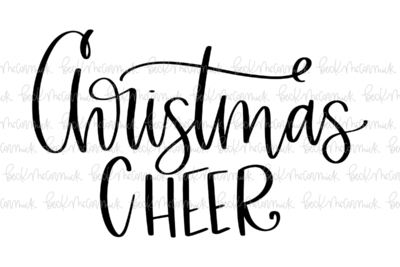 Christmas
CHEER